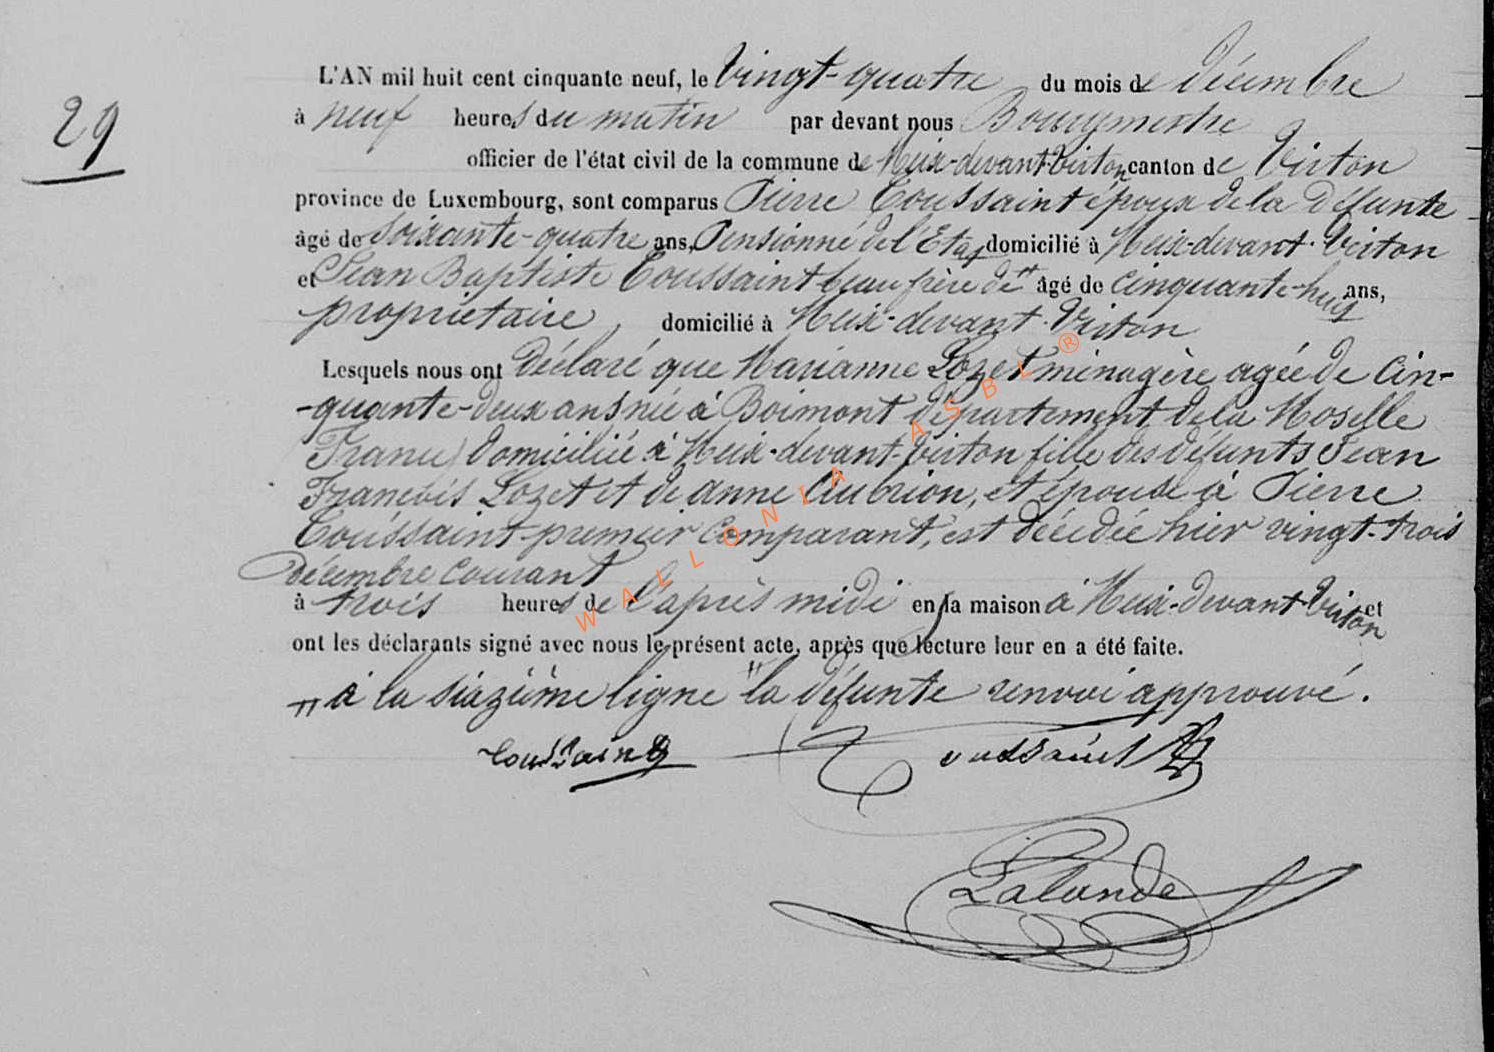 29
L'AN mil huit cent cinquante neuf, le Vingt-quatre du mois de Décembre
à neuf heures du matin par devant nous Bourgmestre
officier de l'état civil de la commune de Meix-devant-Virton canton de Virton
province de Luxembourg, sont comparus Pierre Toussaint époux de la Défunte
âgé de Soixante-quatre ans, Pensionné de l'Etat domicilié à Meix-devant-Virton
et Jean Baptiste Toussaint beau frère de " âgé de cinquante-huit ans,
propriétaire, domicilié à Meix-devant-Virton
Lesquels nous ont Déclaré que Marianne Lozet ménagère agée de Cin-
-quante-deux ans née à Boimont département de la Moselle
France) domiciliée à Meix-devant-Virton fille des défunts Jean
François Lozet et de Anne Aubrion, et épouse à Pierre
Toussaint premier Comparant, est décédée hier vingt-trois
décembre Courant
à trois heures de l'après midi en la maison à Meix-devant-Virton et
ont les déclarants signé avec nous le présent acte, après que lecture leur en a été faite.
" à la sixième ligne " la défunte renvoi approuvé.
Toussaint Toussaint
Lalande
WALLONIA ASBL ®